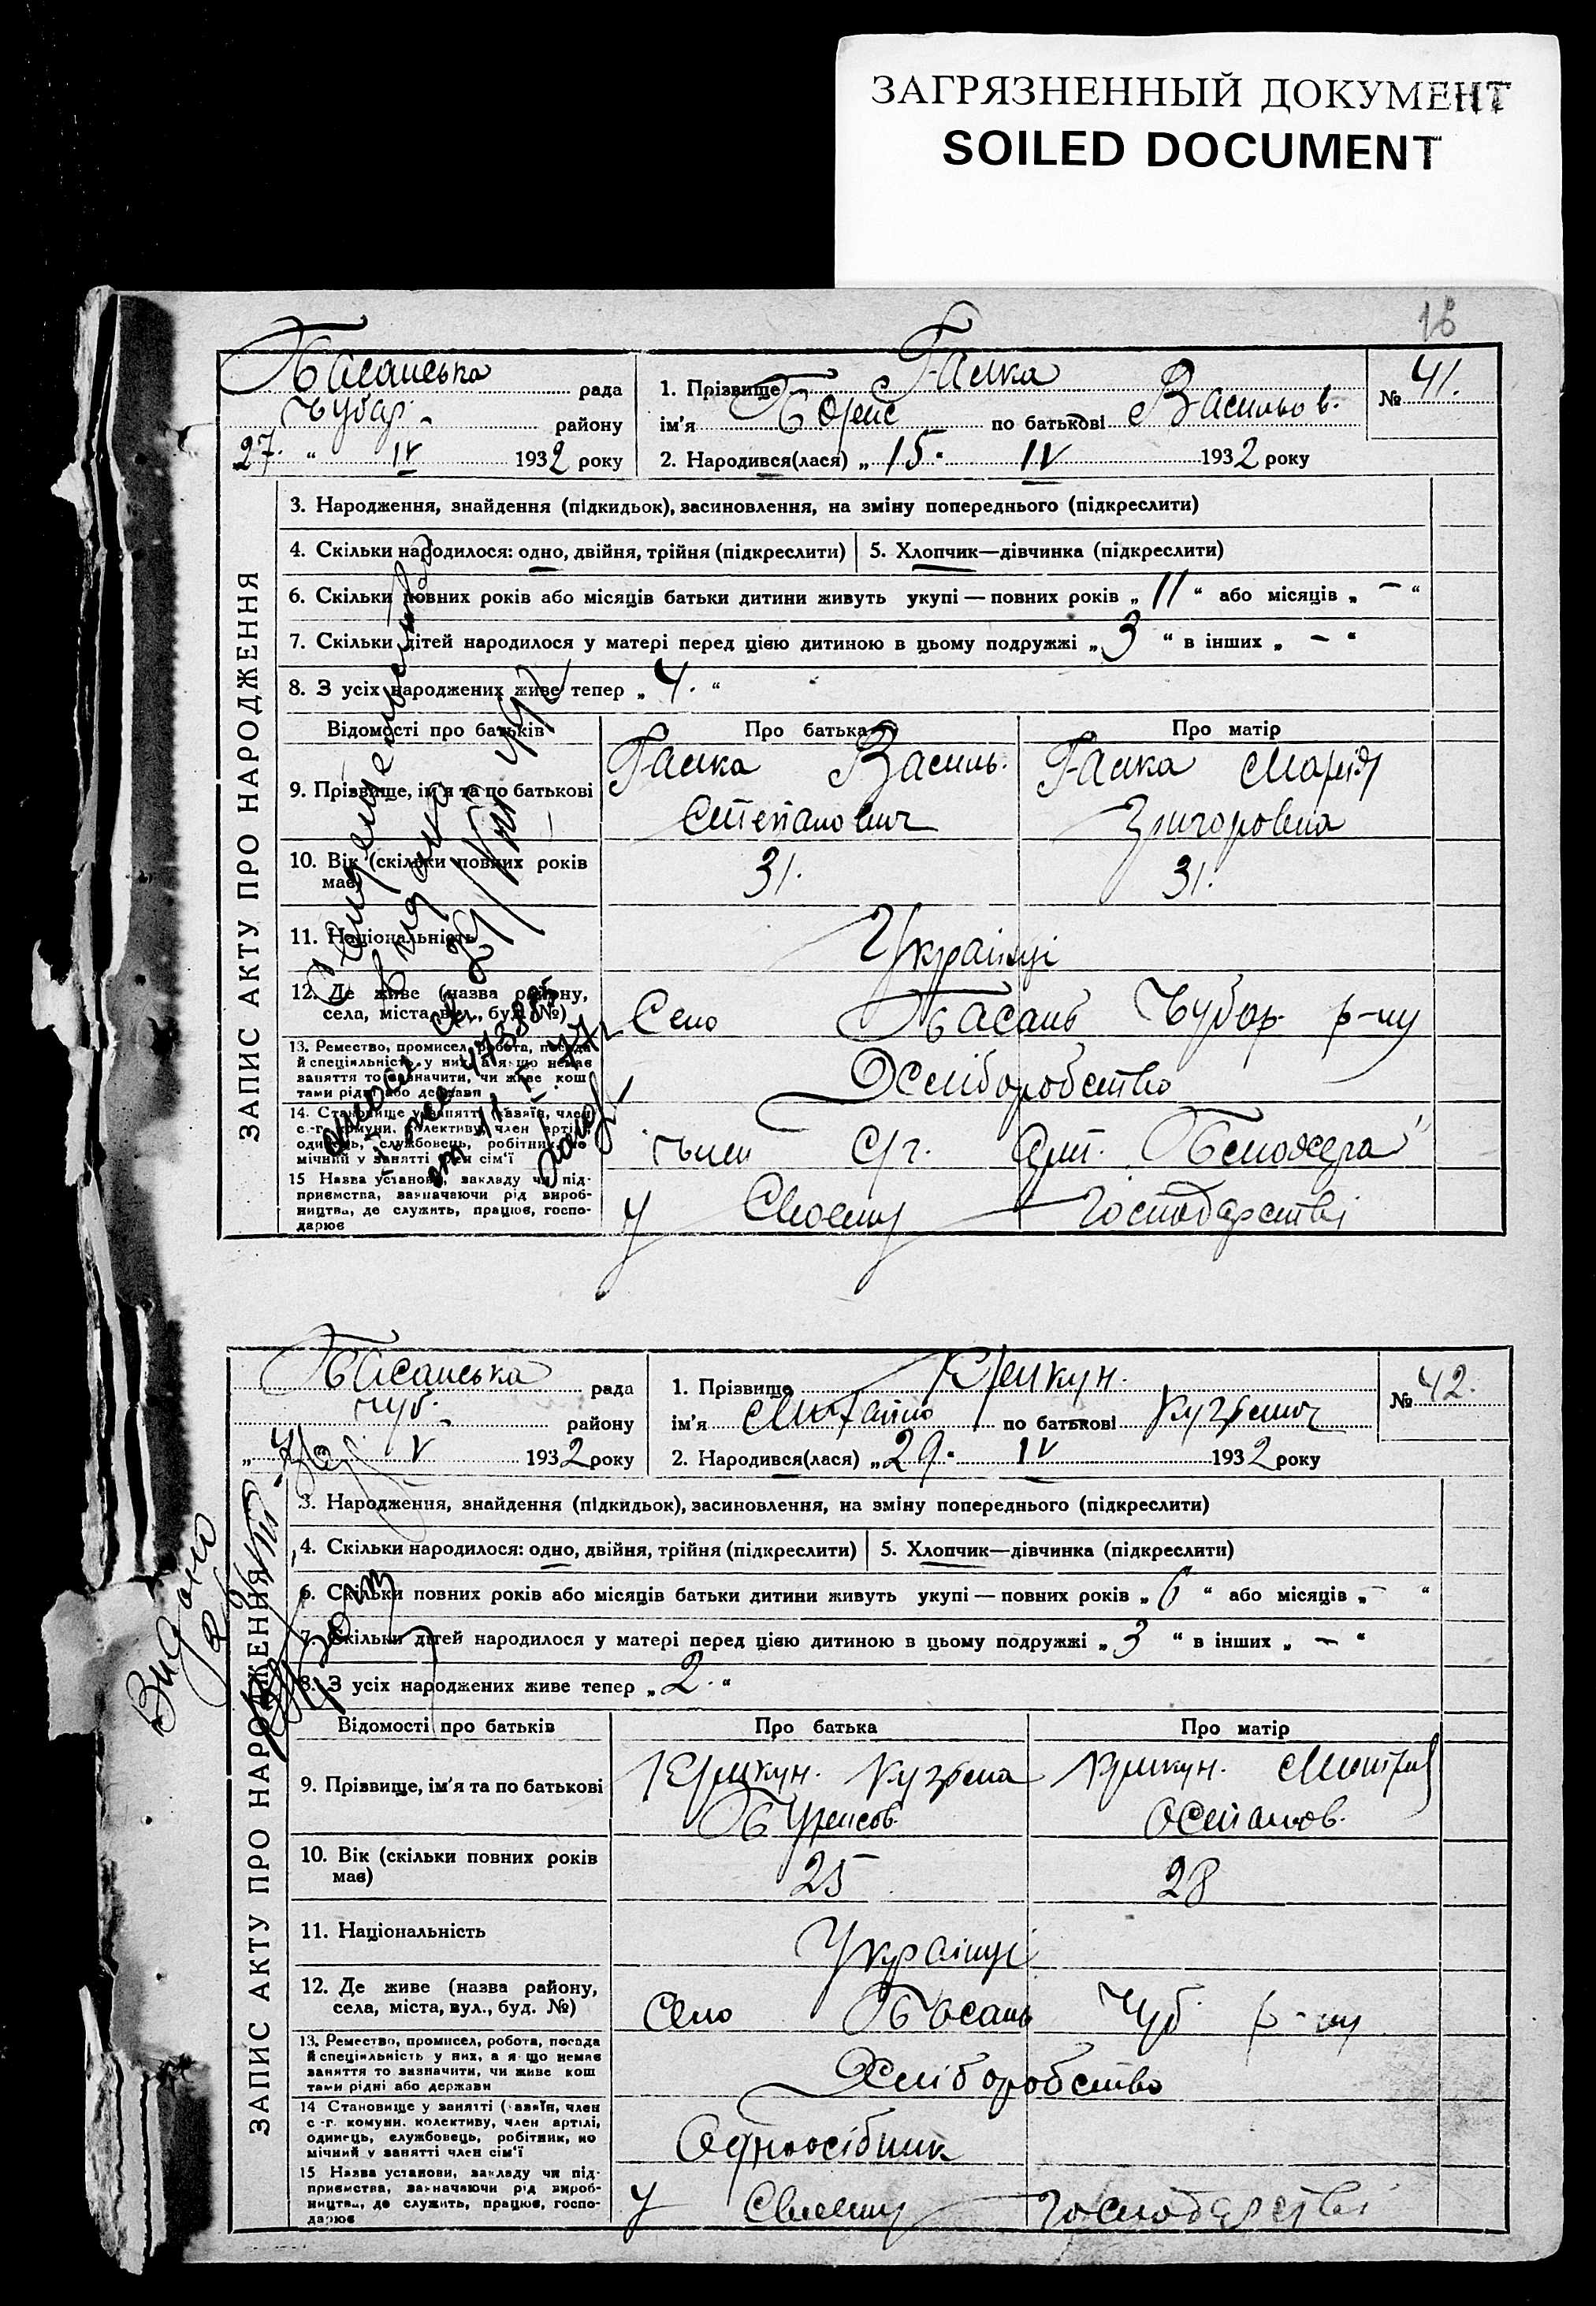 ЗАГРЯЗНЕННЫЙ ДОКУМЕНТ
SOILED DOCUMENT
16
Басанська рада
Чубар. району
27. " IV 1932 року
1. Прізвище Галка
ім'я Борис по батькові Васильов.
2. Народився(лася) „ 15. IV 1932 року
№ 41.
ЗАПИС АКТУ ПРО НАРОДЖЕННЯ
3. Народження, знайдення (підкидьок), засиновлення, на зміну попереднього (підкреслити)
4. Скільки народилося: одно, двійня, трійня (підкреслити)
5. Хлопчик—дівчинка (підкреслити)
6. Скільки повних років або місяців батьки дитини живуть укупі — повних років „ 11 " або місяців „ – "
7. Скільки дітей народилося у матері перед цією дитиною в цьому подружжі „ 3 " в інших „ – "
8. З усіх народжених живе тепер „ 4. "
Відомості про батьків
Про батька
Про матір
9. Прізвище, ім'я та по батькові
Галка Василь
Степанович
Галка Марія
Григоровна
10. Вік (скільки повних років
має)
31.
31.
11. Національність
Українці
12. Де живе (назва району,
села, міста, вул., буд. №)
Село Басань Чубар р-ну
13. Ремество, промисел, робота, посада
й спеціяльність у них, а якщо немає
заняття то зазначити, чи живе кош
тами рідні або держави
Хліборобство
14. Становище у занятті (хазяїн, член
с.-г. комуни, колективу, член артілі,
одинець, службовець, робітник, по
мічний у занятті член сім'ї
член С/г. Арт.
15 Назва установи, закладу чи під-
приємства, зазначаючи рід вироб-
ництва, де служить, працює, госпо-
дарює
у Своєму господарстві
Басанська рада
Чуб. району
„ V 1932 року
1. Прізвище
ім'я Михайло по батькові Кузьмич
2. Народився(лася) „ 29. IV 1932 року
№ 42.
Видано
ЗАПИС АКТУ ПРО НАРОДЖЕННЯ
3. Народження, знайдення (підкидьок), засиновлення, на зміну попереднього (підкреслити)
4. Скільки народилося: одно, двійня, трійня (підкреслити)
5. Хлопчик—дівчинка (підкреслити)
6. Скільки повних років або місяців батьки дитини живуть укупі — повних років „ 6 " або місяців „ – "
7. Скільки дітей народилося у матері перед цією дитиною в цьому подружжі „ 3 " в інших „ – "
8. З усіх народжених живе тепер „ 2. "
Відомості про батьків
Про батька
Про матір
9. Прізвище, ім'я та по батькові
Кузьма
10. Вік (скільки повних років
має)
25
28
11. Національність
Українці
12. Де живе (назва району,
села, міста, вул., буд. №)
Село Басань Чуб р-ну
13. Ремество, промисел, робота, посада
й спеціяльність у них, а якщо немає
заняття то зазначити, чи живе кош
тами рідні або держави
Хліборобство
14 Становище у занятті (хазяїн, член
с.-г. комуни, колективу, член артілі,
одинець, службовець, робітник, по
мічний у занятті член сім'ї
Одноосібник
15 Назва установи, закладу чи під-
приємства, зазначаючи рід вироб-
ництва, де служить, працює, госпо-
дарює
у Своєму господарстві